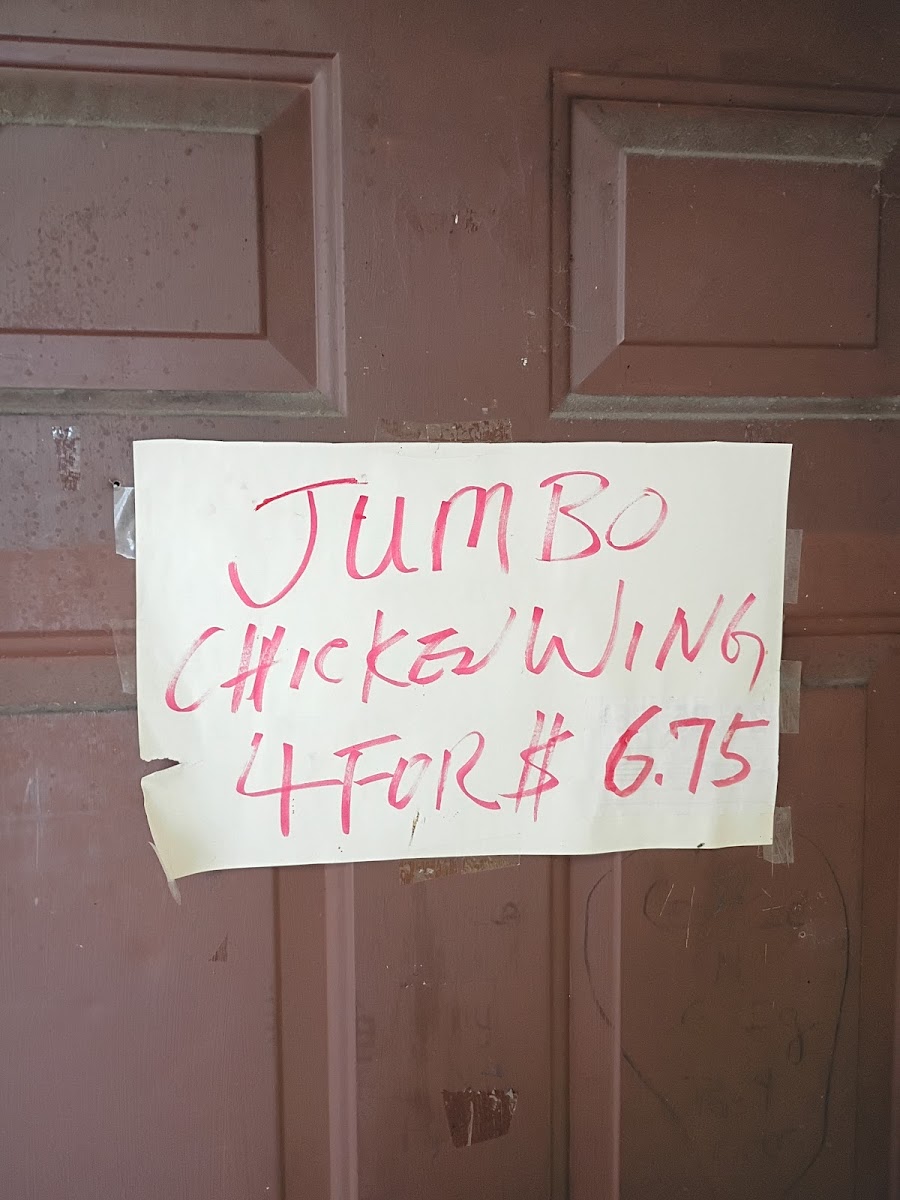 JUMBO
CHICKEN WING
4 FOR $ 6.75